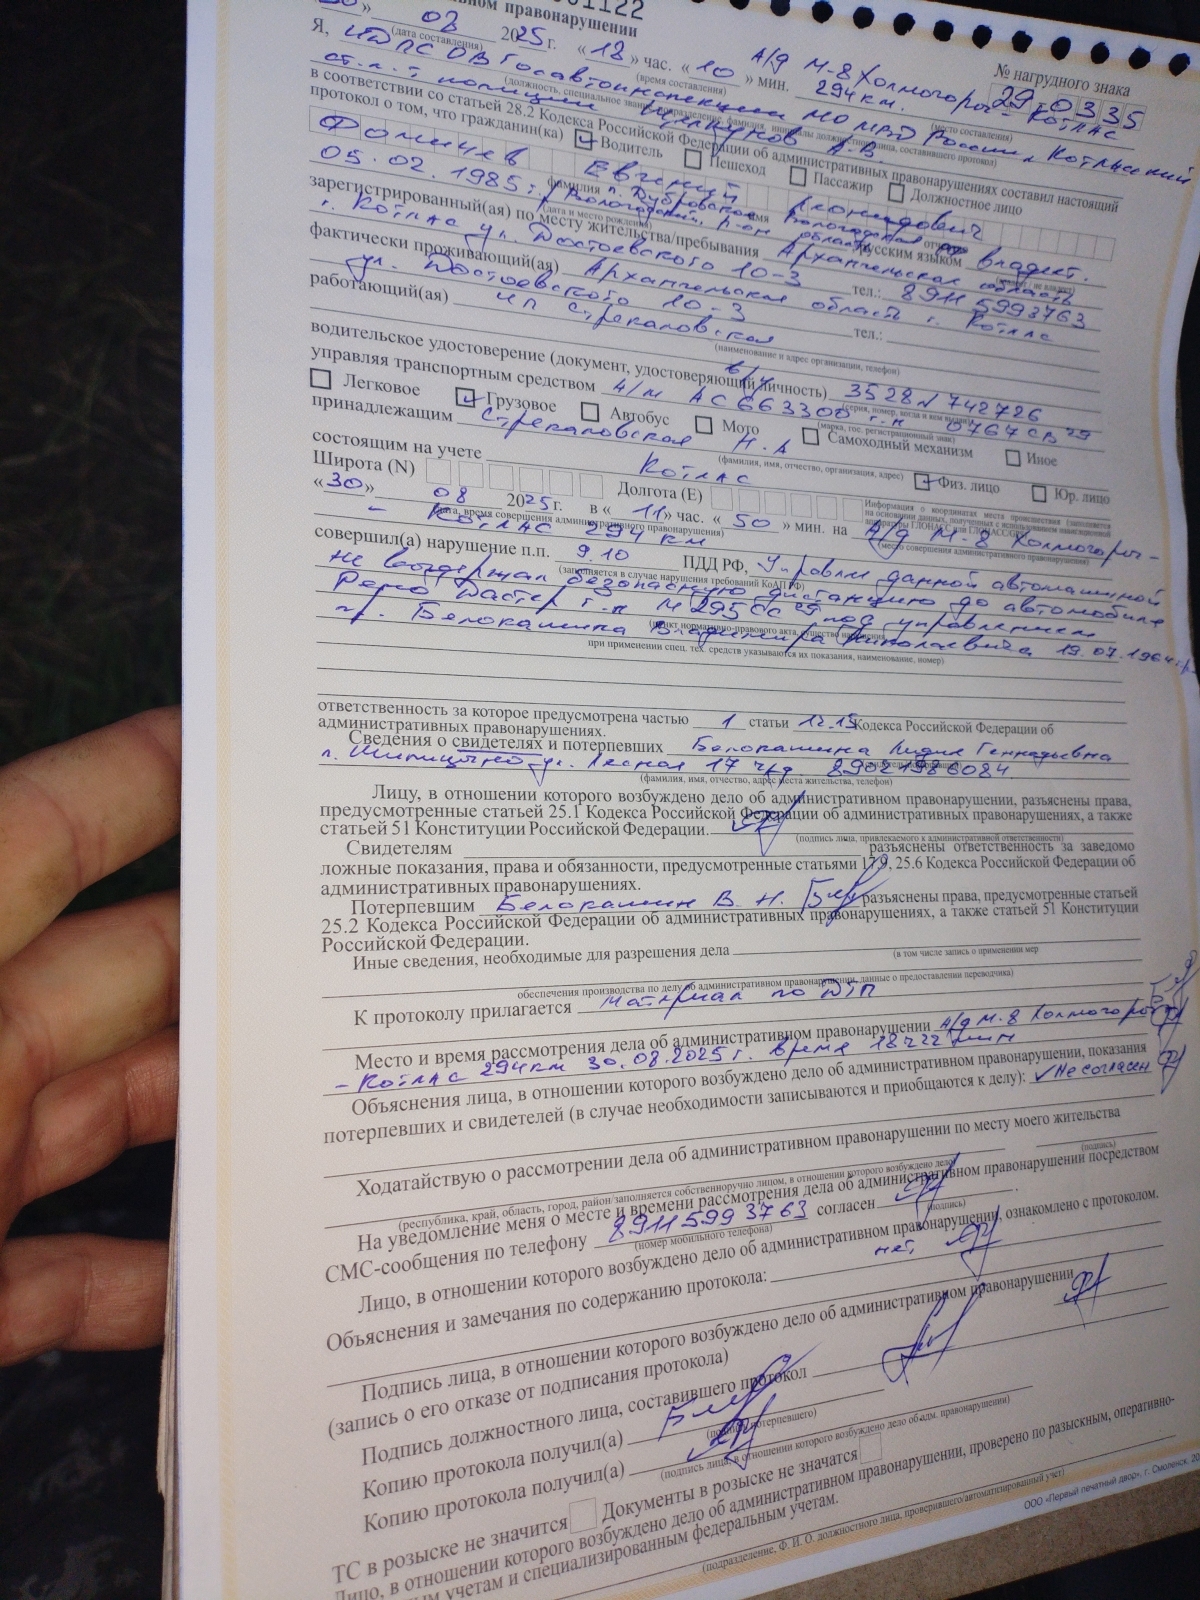 ном правонарушении
30» 08 2025 г. «18» час. «10» мин. А/д М-8 Холмогоры -
(дата составления) (время составления) 294 км. Котлас
№ нагрудного знака
29-0335
Я, ИДПС ОВ Госавтоинспекции МО МВД России «Котласский
ст. л-т полиции А.В
в соответствии со статьей 28.2 Кодекса Российской Федерации об административных правонарушениях составил настоящий
протокол о том, что гражданин(ка) Водитель Пешеход Пассажир Должностное лицо
Евгений Леонидович
05.02.1985 г. Вологодская область русским языком владеет.
(дата и место рождения)
зарегистрированный(ая) по месту жительства/пребывания Архангельская область
г. Котлас ул. Достоевского 10-3 тел.: 89115993763
фактически проживающий(ая) Архангельская область г. Котлас
ул. Достоевского 10-3 тел.:
работающий(ая) ИП Стрекаловская
(наименование и адрес организации, телефон)
водительское удостоверение (документ, удостоверяющий личность) в/у 3528 № 742726
(серия, номер, когда и кем выдан)
управляя транспортным средством А/м АС663300 г.н О767СВ 29
(марка, гос. регистрационный знак)
Легковое Грузовое Автобус Мото Самоходный механизм Иное
принадлежащим Стрекаловская Н.А
(фамилия, имя, отчество, организация, адрес)
состоящим на учете Котлас Физ. лицо Юр. лицо
Широта (N) Долгота (E)
«30» 08 2025 г. в «11» час. «50» мин. на А/д М-8 Холмогоры -
(дата, время совершения административного правонарушения) (место совершения административного правонарушения)
- Котлас 294 км
совершил(а) нарушение п.п. 9.10 ПДД РФ, Управляя данной автомашиной
(заполняется в случае нарушения требований КоАП РФ)
не выдержал безопасную дистанцию до автомобиля
Рено Дастер г.н М295СС 29 под управлением
гр. Белокашина Владимира Николаевича 19.07.1964 г.р.
при применении спец. тех. средств указываются их показания, наименование, номер)
ответственность за которое предусмотрена частью 1 статьи 12.15 Кодекса Российской Федерации об
административных правонарушениях.
Сведения о свидетелях и потерпевших Белокашина Лидия Геннадьевна
п. Шипицыно ул. Лесная 17 89021986084.
(фамилия, имя, отчество, адрес места жительства, телефон)
Лицу, в отношении которого возбуждено дело об административном правонарушении, разъяснены права,
предусмотренные статьей 25.1 Кодекса Российской Федерации об административных правонарушениях, а также
статьей 51 Конституции Российской Федерации.
(подпись лица, привлекаемого к административной ответственности)
Свидетелям разъяснены ответственность за заведомо
ложные показания, права и обязанности, предусмотренные статьями 17.9, 25.6 Кодекса Российской Федерации об
административных правонарушениях.
Потерпевшим Белокашин В. Н. разъяснены права, предусмотренные статьей
25.2 Кодекса Российской Федерации об административных правонарушениях, а также статьей 51 Конституции
Российской Федерации.
Иные сведения, необходимые для разрешения дела
(в том числе запись о применении мер
обеспечения производства по делу об административном правонарушении, данные о предоставлении переводчика)
К протоколу прилагается материал по ДТП
Место и время рассмотрения дела об административном правонарушении А/д М-8 Холмогоры
- Котлас 294 км 30.08.2025 г. время 18 ч 22 мин
Объяснения лица, в отношении которого возбуждено дело об административном правонарушении, показания
потерпевших и свидетелей (в случае необходимости записываются и приобщаются к делу): Не согласен
Ходатайствую о рассмотрении дела об административном правонарушении по месту моего жительства
(подпись)
(республика, край, область, город, район/заполняется собственноручно лицом, в отношении которого возбуждено дело)
На уведомление меня о месте и времени рассмотрения дела об административном правонарушении посредством
СМС-сообщения по телефону 89115993763 согласен
(номер мобильного телефона) (подпись)
Лицо, в отношении которого возбуждено дело об административном правонарушении, ознакомлено с протоколом.
Объяснения и замечания по содержанию протокола: нет,
Подпись лица, в отношении которого возбуждено дело об административном правонарушении
(запись о его отказе от подписания протокола)
Подпись должностного лица, составившего протокол
Копию протокола получил(а)
(подпись потерпевшего)
Копию протокола получил(а)
(подпись лица, в отношении которого возбуждено дело об адм. правонарушении)
ТС в розыске не значится Документы в розыске не значатся
Лицо, в отношении которого возбуждено дело об административном правонарушении, проверено по разыскным, оперативно-
учетам и специализированным федеральным учетам.
(подразделение, Ф. И. О. должностного лица, проверившего/автоматизированный учет)
ООО «Первый печатный двор», г. Смоленск, 20